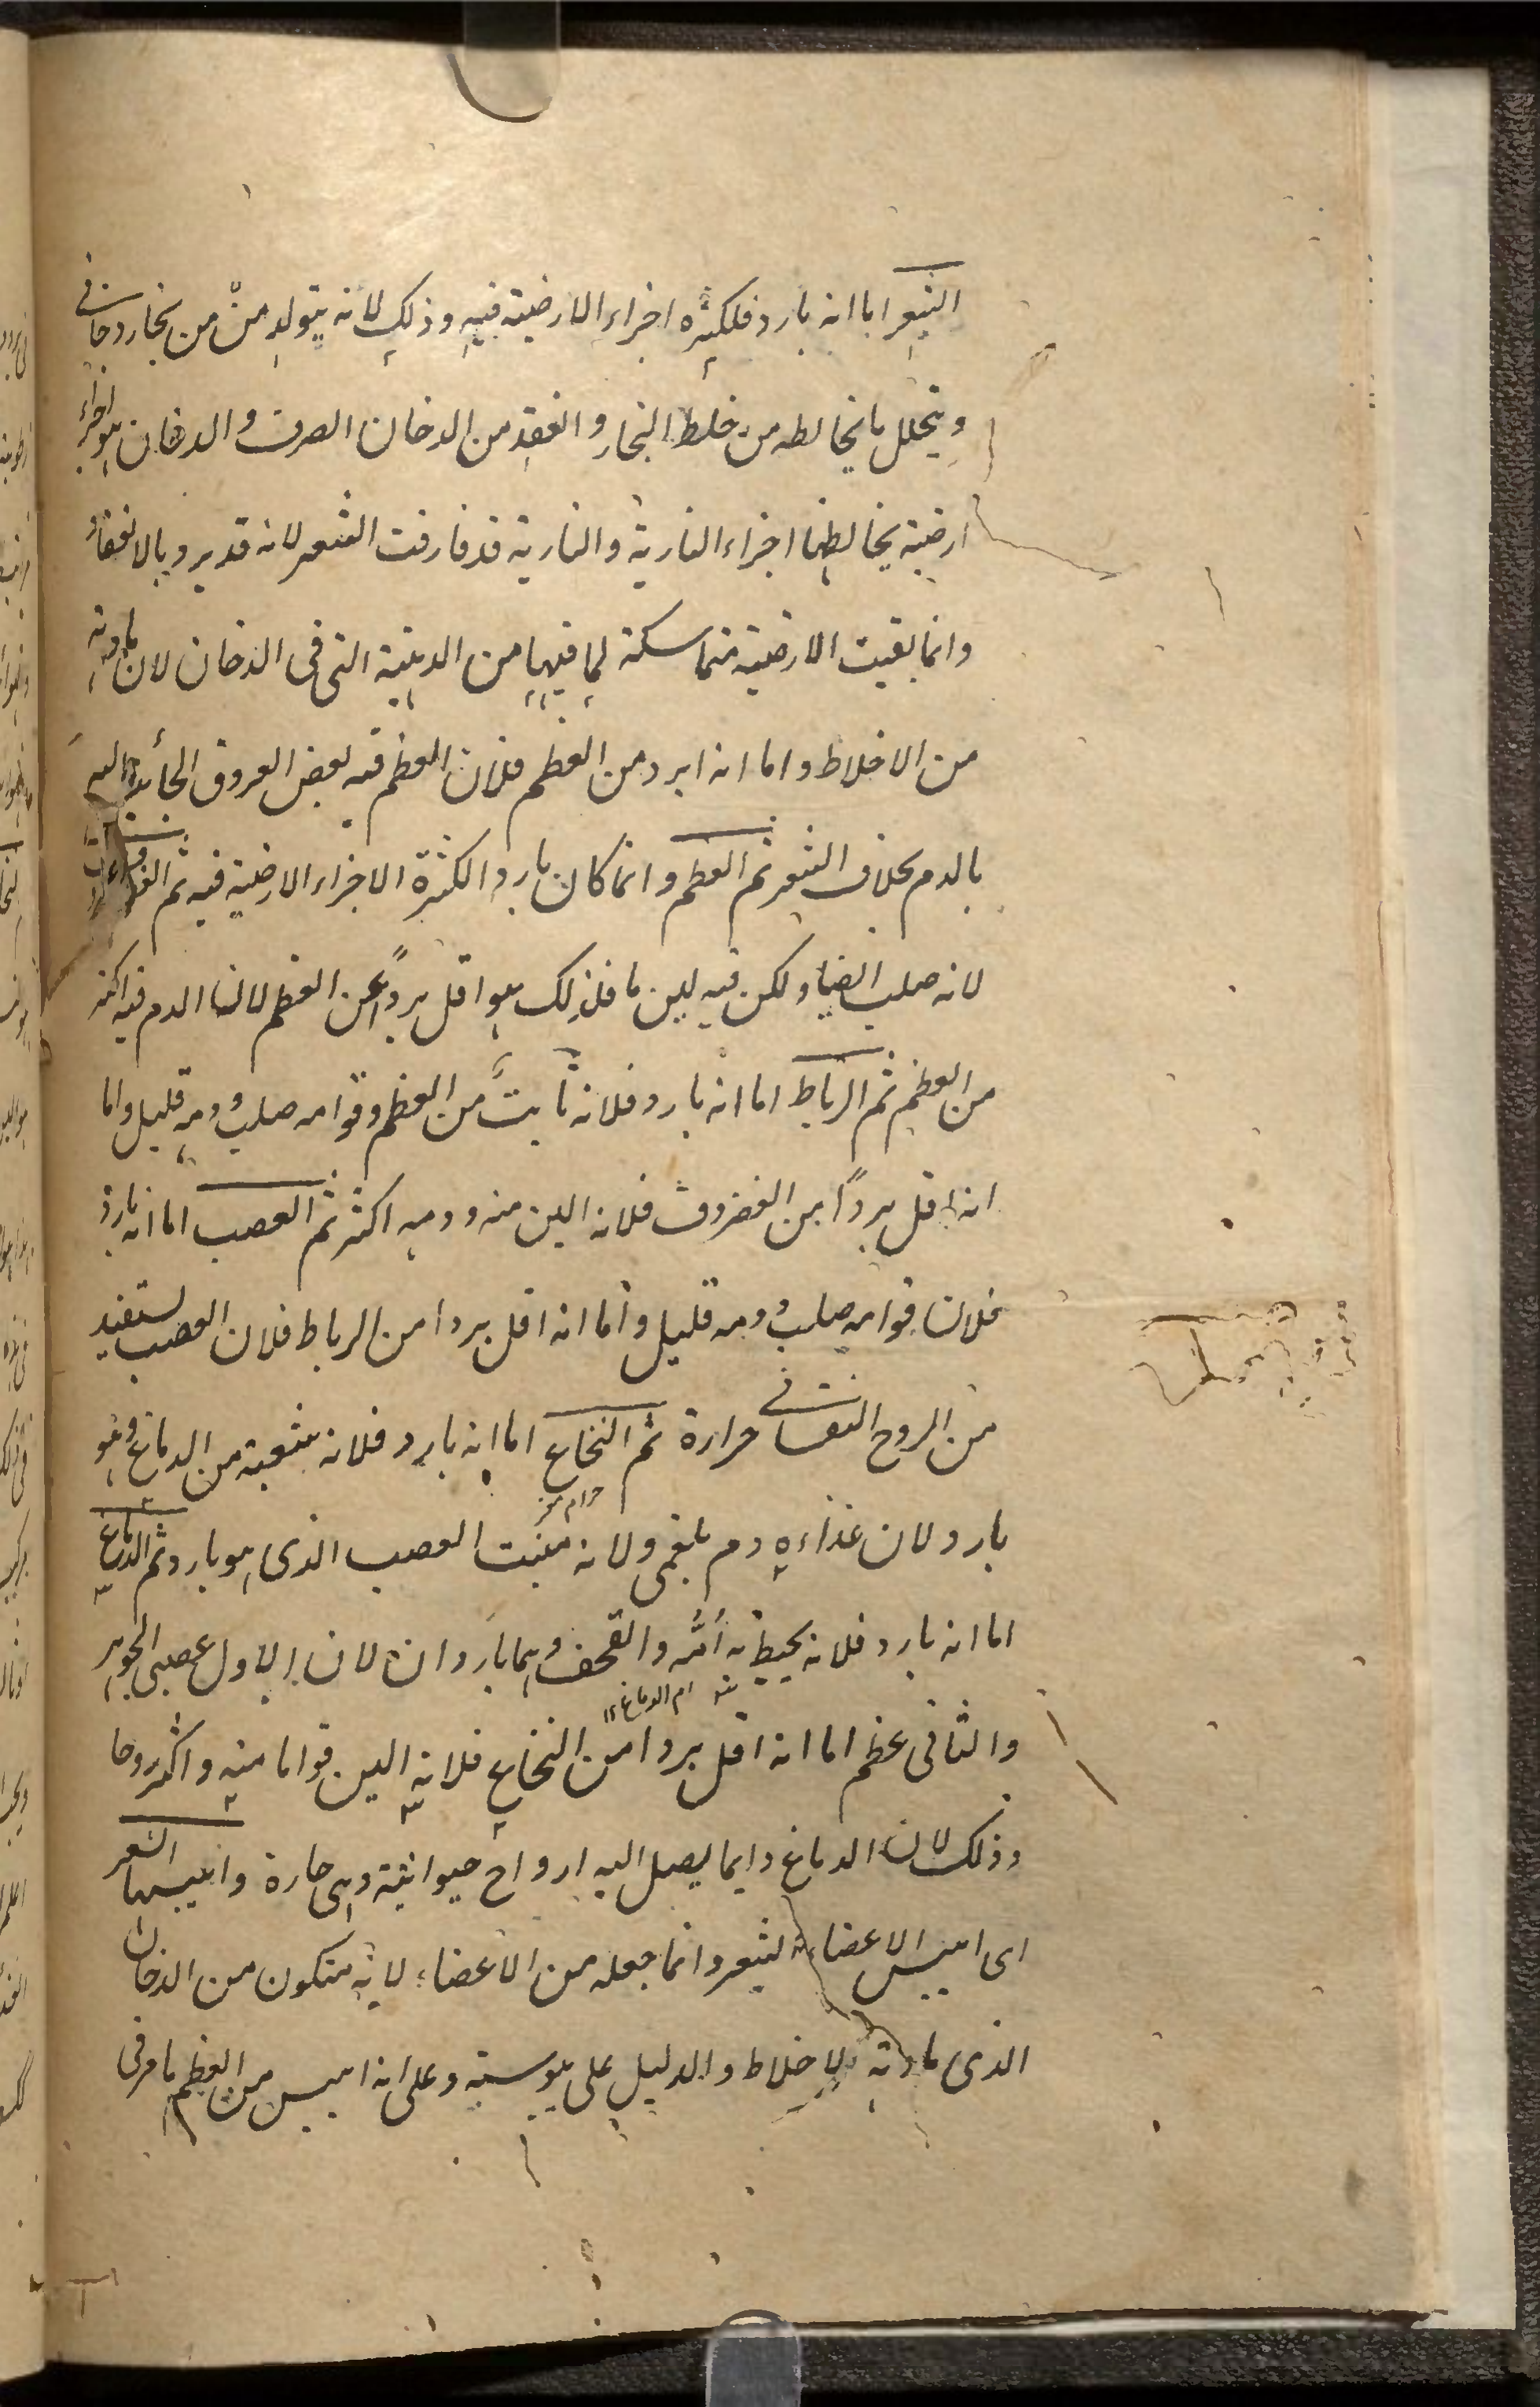 الشعر اما انه بارد فلكثرة اجزاء الارضية فيه وذلك لانه يتولد من من بخار دخانى
ويتحلل ما يخالطه من خلط البخار وانعقد من الدخان الصرف والدخان هو اجزاء
ارضية يخالطها اجزاء النارية والنارية قد فارقت الشعر لانه قد يرد بالانعقاد
وانما بقيت الارضية متماسكة لما فيها من الدهنية التى فى الدخان لان مادته
من الاخلاط واما انه ابرد من العظم فلان العظم فيه بعض العروق الجائية اليه
بالدم بخلاف الشعر ثم العظم وانما كان باردا لكثرة الاجزاء الارضية فيه ثم الغضروف
لانه صلب ايضا ولكن فيه لين ما فلذلك هو اقل بردًا عن العظم لان الدم فيه اكثر
من العظم ثم الرباط اما انه بارد فلانه نابت من العظم وقوامه صلب ودمه قليل واما
انه اقل بردًا من الغضروف فلانه الين منه ودمه اكثر ثم العصب اما انه بارد
فلان قوامه صلب ودمه قليل واما انه اقل بردا من الرباط فلان العصب يستفيد
من الروح النفسانى حرارة ثم النخاع اما انه بارد فلانه شعبة من الدماغ وهو
بارد ولان غذاءه دم بلغمى ولانه منبت العصب الذى هو بارد ثم الدماغ
حرام مغز
اما انه بارد فلانه يحيط به اُمُّه والقحف وهما باردان لان الاول عصبى الجوهر
ام الدماغ ١٢
والثانى عظم اما انه اقل بردا من النخاع فلانه الين قواما منه واكثر روحا
وذلك لان الدماغ دايما يصل اليه ارواح حيوانية وهى حارة وايبسها الشعر
اى ايبس الاعضاء الشعر وانما جعله من الاعضاء لانه متكون من الدخان
الذى مادته الاخلاط والدليل على يبوسته وعلى انه ايبس من العظم ما مر فى